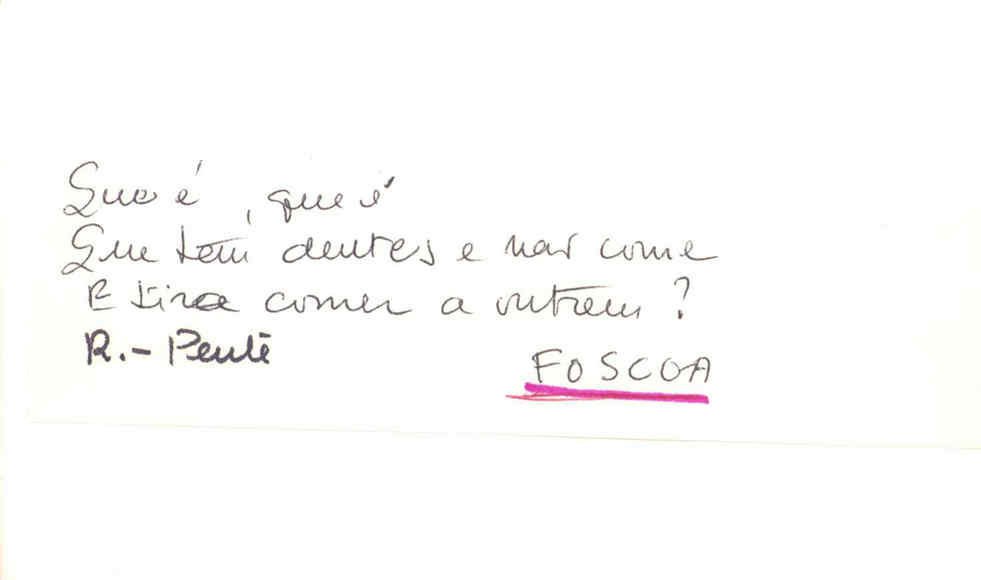 Que é, que é
Que tem dentes e não come
E tira comer a outrem?
R.- Pente
FOSCOA